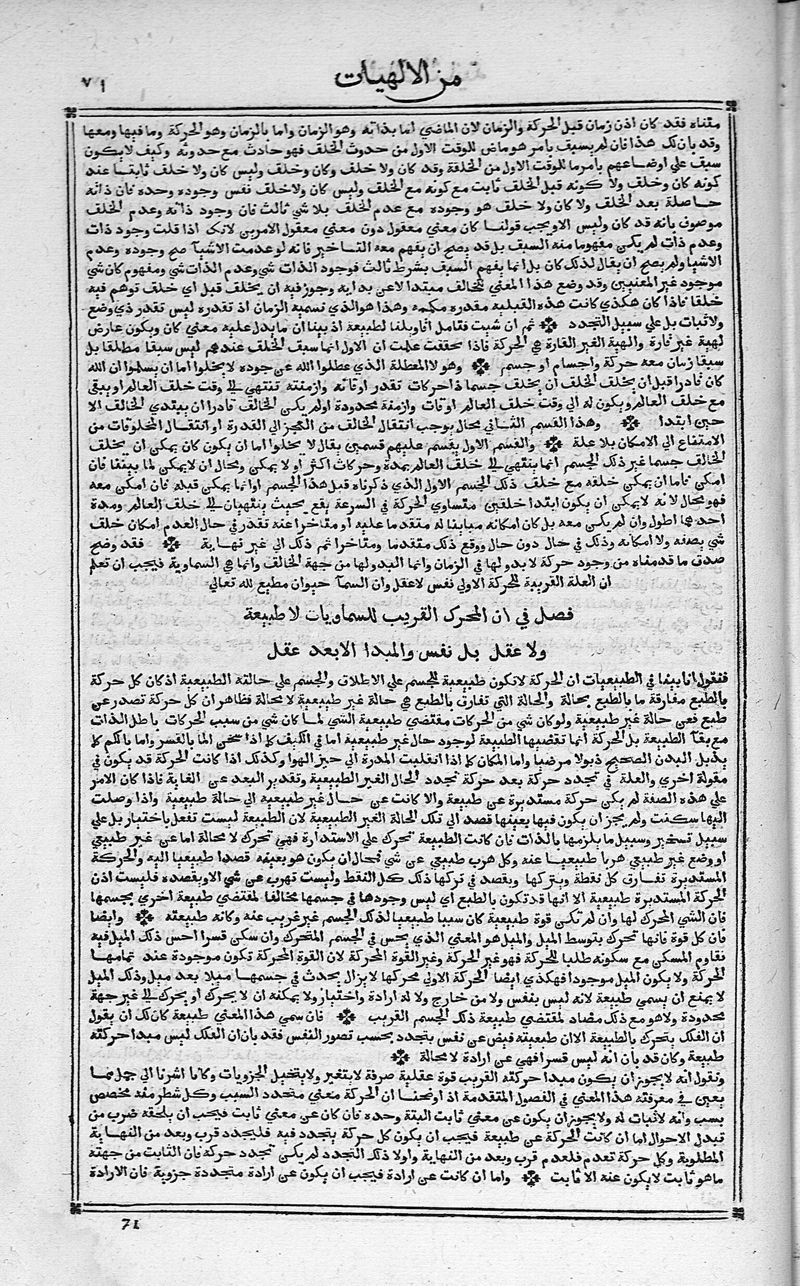 من الالهيات
٧١
متناه فقد كان اذن زمان قبل الحركة والزمان لان الماضي اما بذاته وهو الزمان واما بالزمان وهو الحركة وما فيها ومعها
وقد بان لك هذا فان لم يسبق بامر هو ماض للوقت الاول من حدوث الخلق فهو حادث مع حدوثه وكيف لا يكون
سبق علي اوضاعهم بامر ما للوقت الاول من الخلقة وقد كان ولا خلق وكان وخلق وليس كان ولا خلق ثابتا عند
كونه كان وخلق ولا كونه قبل الخلق ثابت مع كونه مع الخلق وليس كان ولا خلق نفس وجوده وحده فان ذاته
حاصلة بعد الخلق ولا كان ولا خلق هو وجوده مع عدم الخلق بلا شي ثالث فان وجود ذاته وعدم الخلق
موصوف بانه قد كان وليس الان وتحت قولنا كان معني معقول دون معني معقول الامرين لانك اذا قلت وجود ذات
وعدم ذات لم يكن مفهوما منه السبق بل قد يصح ان يفهم معه التاخير فانه لو عدمت الاشيا صح وجوده وعدم
الاشيا ولم يصح ان يقال لذلك كان بل انما يفهم السبق بشرط ثالث فوجود الذات شي وعدم الذات شي ومفهوم كان شي
موجود غير المعنيين وقد وضع هذا المعني للخالف مبتدا لا عن بداية وجوز فيه ان يخلق قبل اي خلق توهم فيه
خلقا فاذا كان هكذي كانت هذه القبلية مقدره مكممه وهذا هو الذي نسميه الزمان اذ تقدره ليس تقدر ذي وضع
ولا ثبات بل علي سبيل التجدد ثم ان شيت فتامل اقاويلنا لطبيعة اذ بينا ان ما يدل عليه معني كان ويكون عارض
لهية غير قارة والهية الغير القارة هي الحركة فاذا تحققت علمت ان الاول انما سبق الخلق عندهم ليس سبقا مطلقا بل
سبقا بزمان معه حركة واجسام او جسم وهولا المعطلة الذي عطلوا الله عن جوده لا يخلوا اما ان يسلموا ان الله
كان قادرا قبل ان يخلق الخلق ان يخلق جسما ذا حركات تقدر اوقاته وازمنته تنتهي الي وقت خلق العالم او يبقي
مع خلق العالم ويكون له الي وقت خلق العالم اوقات وازمنة محدودة او لم يكن الخالق قادرا ان يبتدي الخلق الا
حين ابتدا وهذا القسم الثاني محال يوجب انتقال الخالق من العجز الي القدرة او انتقال المخلوقات من
الامتناع الي الامكان بلا علة والقسم الاول يقسم عليهم قسمين يقال لا يخلوا اما ان يكون كان يمكن ان يخلق
الخالق جسما غير ذلك الجسم انما ينتهي الي خلق العالم بمدة وحركات اكثر او لا يمكن ومحال ان لا يمكن لما بيناه فان
امكن فاما ان يمكن خلقه مع خلق ذلك الجسم الاول الذي ذكرناه قبل هذا الجسم او انما يمكن قبله فان امكن معه
فهو محال لانه لا يمكن ان يكون ابتدا خلقين متساوي الحركة في السرعة يقع بحيث ينتهيان الي خلق العالم ومدة
احدهما اطول وان لم يكن معه بل كان امكانه مباينا له متقدما عليه او متاخرا عنه تقدر في حال العدم امكان خلق
شي بصفه ولا امكانه وذلك في حال دون حال ووقع ذلك متقدما ومتاخرا ثم ذلك الي غير نهاية فقد وضح
صدق ما قدمناه من وجود حركة لا بدو لها في الزمان وانما البدو لها من جهة الخالق وانها هي السماوية فيجب ان تعلم
ان العلة القريبة للحركة الاولي نفس لا عقل وان السما حيوان مطيع لله تعالي
فصل في ان المحرك القريب للسماويات لا طبيعة
ولا عقل بل نفس والمبدا الابعد عقل
فنقول انا بينا في الطبيعيات ان الحركة لا تكون طبيعية للجسم علي الاطلاق والجسم علي حالته الطبيعية اذ كان كل حركة
بالطبع مفارقة ما بالطبع بحالة والحالة التي تفارق بالطبع هي حالة غير طبيعية لا محالة فظاهر ان كل حركة تصدر عن
طبع فعن حالة غير طبيعية ولو كان شي من الحركات مقتضي طبيعة الشي لما كان شي من سبب الحركات باطل الذات
مع بقا الطبيعة بل الحركة انما تقتضيها الطبيعة لوجود حال غير طبيعية اما في الكيف كما اذا سخن الما بالقسر واما بالكم كما
يذبل البدن الصحيح ذبولا مرضيا واما المكان كما اذا انقلبت المدرة الي حيز الهوا وكذلك اذا كانت الحركة قد يكون في
مقولة اخري والعلة في تجدد حركة بعد حركة تجدد الحال الغير الطبيعية وتقدير البعد عن الغاية فاذا كان الامر
علي هذه الصفة لم يكن حركة مستديرة عن طبيعة والا كانت عن حال غير طبيعية الي حالة طبيعية واذا وصلت
اليها سكنت ولم يجز ان يكون فيها بعينها قصد الي تلك الحالة الغير الطبيعية لان الطبيعة ليست تفعل باختيار بل علي
سبيل تسخير وسبيل ما يلزمها بالذات فان كانت الطبيعة تحرك علي الاستدارة فهي تحرك لا محالة اما عن غير طبيعي
او وضع غير طبيعي هربا طبيعيا عنه وكل هرب طبيعي عن شي فمحال ان يكون هو بعينه قصدا طبيعيا اليه والحركة
المستديرة تفارق كل نقطة وتتركها وبقصد في تركها ذلك كل النقط وليست تهرب عن شي الا وتقصده فليست اذن
الحركة المستديرة طبيعية الا انها قد تكون بالطبع اي ليس وجودها في جسمها مخالفا لمقتضي طبيعة اخري لجسمها
فان الشي المحرك لها وان لم تكن قوة طبيعية كان سببا طبيعيا لذلك الجسم غير غريب عنه وكانه طبيعته وايضا
فان كل قوة فانها تحرك بتوسط الميل والميل هو المعني الذي يحس في الجسم المتحرك وان سكن قسرا احس ذلك الميل فيه
تقاوم المسكن مع سكونه طلبا للحركة فهو غير الحركة وغير القوة المحركة لان القوة المحركة تكون موجودة عند تمامها
الحركة ولا يكون الميل موجودا فهكذي ايضا الحركة الاولي محركها لا يزال يحدث في جسمها ميلا بعد ميل وذلك الميل
لا يمنع ان يسمي طبيعة لانه ليس بنفس ولا من خارج ولا له ارادة واختيار ولا يمكنه ان لا يحرك او يحرك الي غير جهة
محدودة ولا هو مع ذلك مضاد لمقتضي طبيعة ذلك الجسم القريب فان سمي هذا المعني طبيعة كان لك ان يقول
ان الفلك يتحرك بالطبيعة الا ان طبيعته فيض عن نفس يتجدد بحسب تصور النفس فقد بان ان الفلك ليس مبدا حركته
طبيعة وكان قد بان انه ليس قسرا فهي عن ارادة لا محالة
ونقول انه لا يجوز ان يكون مبدا حركته القريب قوة عقلية صرفة لا يتغير ولا يتخيل الجزويات وكانا اشرنا الي جمل مما
يعين في معرفة هذا المعني في الفصول المتقدمة اذ اوضحنا ان الحركة معني متجدد السبب وكل شطر منه مخصص
بسبب وانه لا ثبات له ولا يجوز ان يكون عن معني ثابت البتة وحده فان كان عن معني ثابت فيجب ان يلحقه ضرب من
تبدل الاحوال اما ان كانت الحركة عن طبيعة فيجب ان يكون كل حركة يتجدد فيه فلتجدد قرب وبعد من النهاية
المطلوبة وكل حركة تعدم فلعدم قرب وبعد من النهاية ولولا ذلك التجدد لم يكن تجدد حركة فان الثابت من جهته
ما هو ثابت لا يكون عنه الا ثابت واما ان كانت عن ارادة فيجب ان يكون عن ارادة متجددة جزوية فان الارادة
71